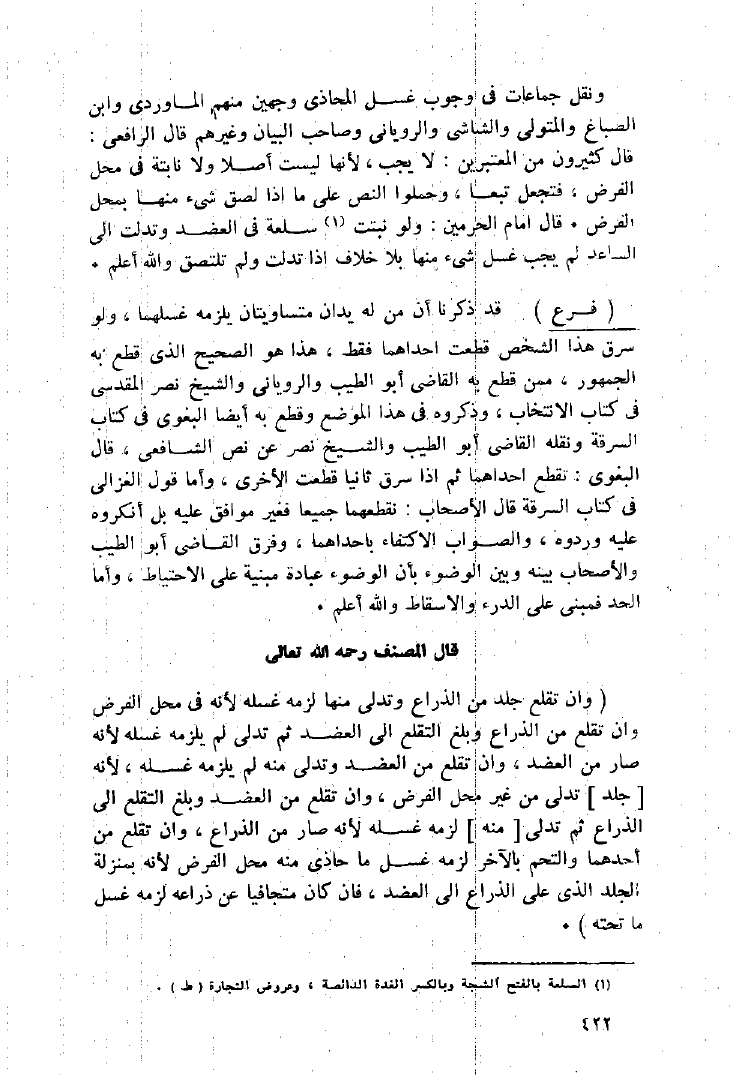 ونقل جماعات فى وجوب غسل المحاذى وجهين منهم الماوردى وابن
الصباغ والمتولى والشاشى والرويانى وصاحب البيان وغيرهم قال الرافعى :
قال كثيرون من المعتبرين : لا يجب ، لأنها ليست أصلا ولا نابتة فى محل
الفرض ، فتجعل تبعا ، وحملوا النص على ما اذا لصق شىء منها بمحل
الفرض • قال امام الحرمين : ولو نبتت (١) سلعة فى العضد وتدلت الى
الساعد لم يجب غسل شىء منها بلا خلاف اذا تدلت ولم تلتصق والله أعلم •
( فرع ) قد ذكرنا أن من له يدان متساويتان يلزمه غسلهما ، ولو
سرق هذا الشخص قطعت احداهما فقط ، هذا هو الصحيح الذى قطع به
الجمهور ، ممن قطع به القاضى أبو الطيب والرويانى والشيخ نصر المقدسى
فى كتاب الانتخاب ، وذكروه فى هذا الموضع وقطع به أيضا البغوى فى كتاب
السرقة ونقله القاضى أبو الطيب والشيخ نصر عن نص الشافعى ، قال
البغوى : تقطع احداهما ثم اذا سرق ثانيا قطعت الأخرى ، وأما قول الغزالى
فى كتاب السرقة قال الأصحاب : نقطعهما جميعا فغير موافق عليه بل أنكروه
عليه وردوه ، والصواب الاكتفاء باحداهما ، وفرق القاضى أبو الطيب
والأصحاب بينه وبين الوضوء بأن الوضوء عبادة مبنية على الاحتياط ، وأما
الحد فمبنى على الدرء والاسقاط والله أعلم •
قال المصنف رحمه الله تعالى
( وان تقلع جلد من الذراع وتدلى منها لزمه غسله لأنه فى محل الفرض
وان تقلع من الذراع وبلغ التقلع الى العضد ثم تدلى لم يلزمه غسله لأنه
صار من العضد ، وان تقلع من العضد وتدلى منه لم يلزمه غسله ، لأنه
[ جلد ] تدلى من غير محل الفرض ، وان تقلع من العضد وبلغ التقلع الى
الذراع ثم تدلى [ منه ] لزمه غسله لأنه صار من الذراع ، وان تقلع من
أحدهما والتحم بالآخر لزمه غسل ما حاذى منه محل الفرض لأنه بمنزلة
الجلد الذى على الذراع الى العضد ، فان كان متجافيا عن ذراعه لزمه غسل
ما تحته ) •
(١) السلعة بالفتح الشجة وبالكسر الغدة الدائصة ، وعروض التجارة ( ط ) •
٤٢٢